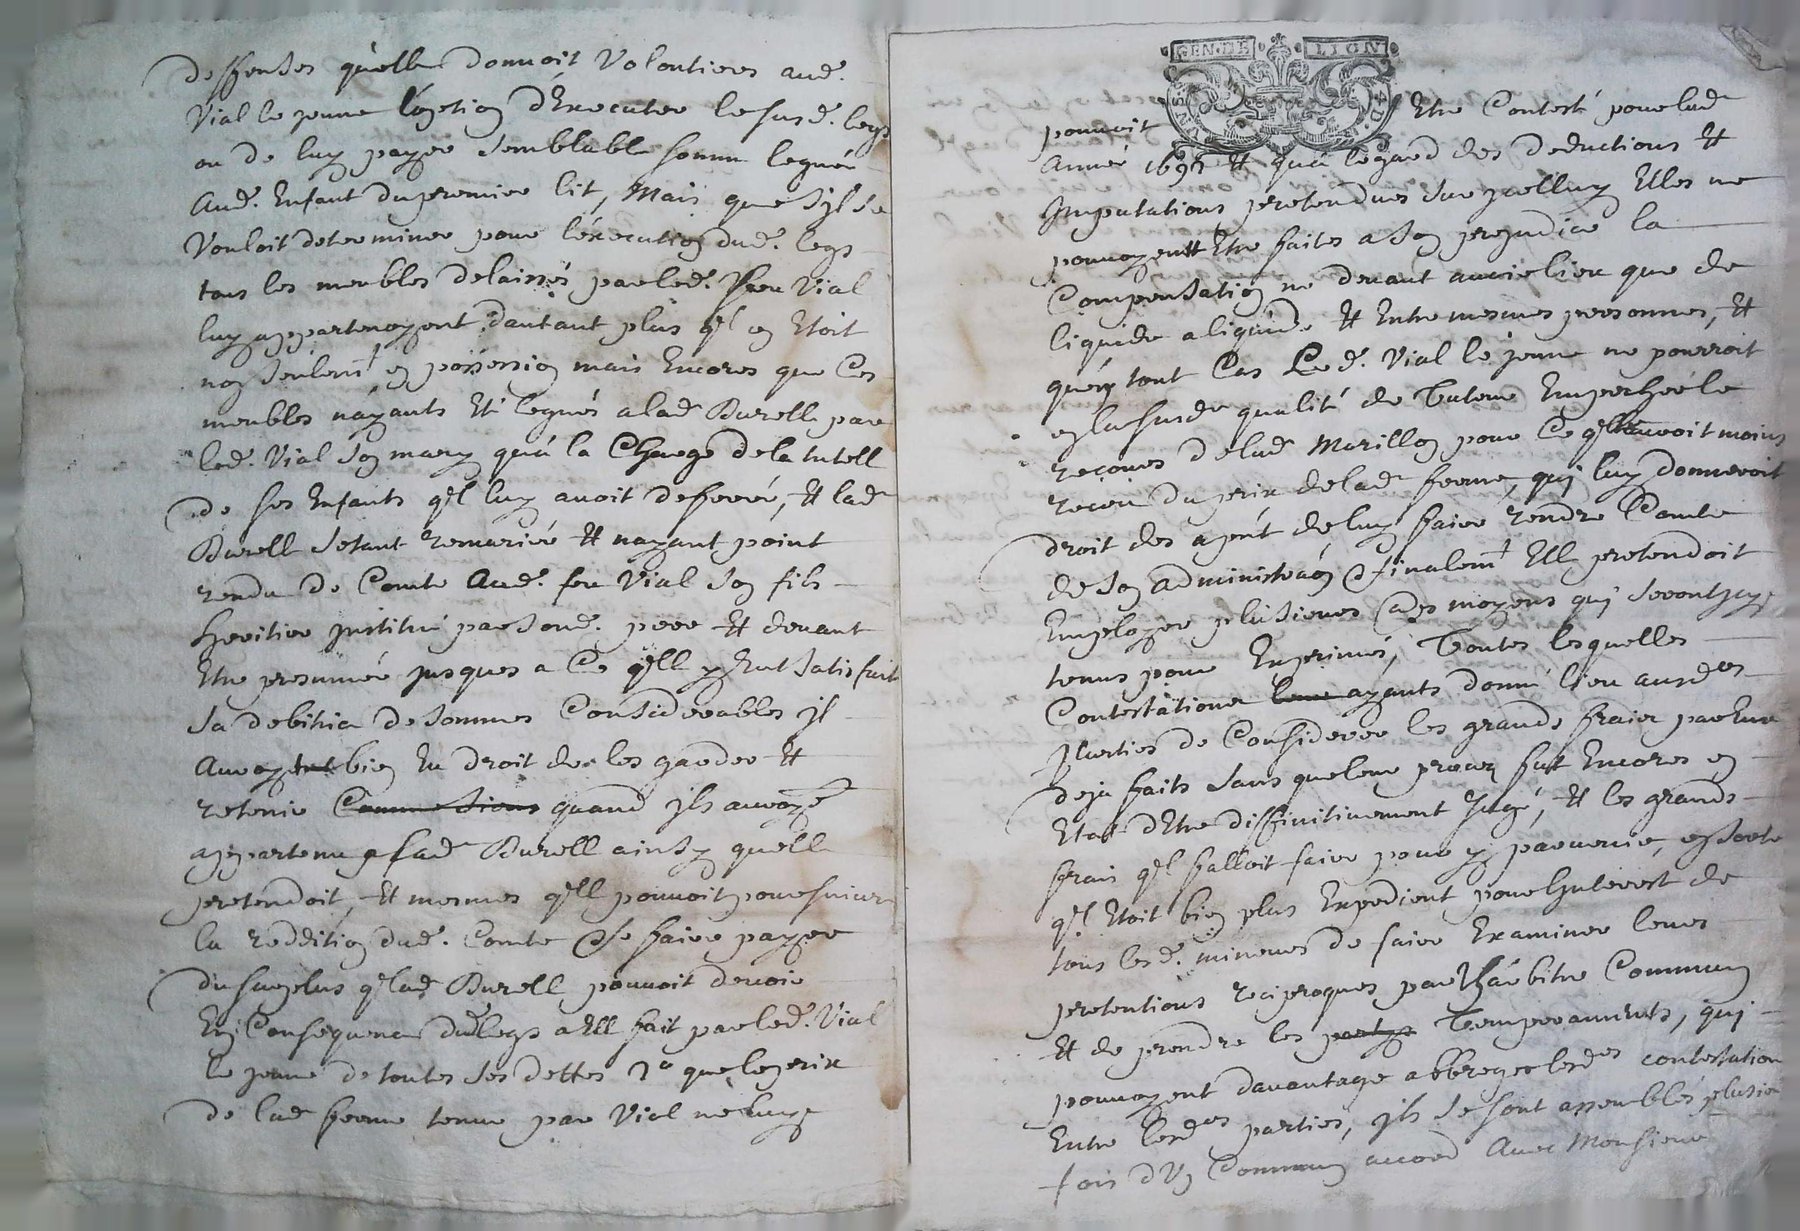 deffenses quelle donnoit Volontiers aud.
Vial le jeune l'option d'Executer le susd. legs
ou de luy payer semblable somme leguée
Aud. Enfant du premier lit, Mais que s'il se
Vouloit determiner pour l'execution dud. legs
tous les meubles delaissés par led. feu Vial
luy appartenoyent dautant plus ql en Etoit
non seulemt en possession mais Encores que Ces
meubles n'ayants Eté legués a lad Burell par
led. Vial son mary qu'a la Charge de la tutell
de ses Enfants ql luy avoit deferée, Et lad
Burell s'etant remariée Et nayant point
rendu de Comte Aud. feu Vial son fils
heritier institué par sond. pere Et devant
Etre presumée jusques a Ce qll y Eut satisfait
sa debitrice de sommes Considerables il
bien Eu droit de les garder Et
retenir quand ils auroyt
appartenu a lad Burell ainsy quelle
pretendoit, Et mesmes qll pouvoit poursuivre
la reddition dud. Comte & se faire payer
du surplus q lad Burell pouvoit devoir
En Consequence dud legs a Ell fait par led. Vial
le jeune de toutes ses dettes que le prix
de lad ferme tenue par Vial ne luy
GEN·DE LION
pouvoit Etre Contesté pour lad
Année 169 Et qua legard des deductions Et
Imputations pretendues sur icelluy Elles ne
pouvoyent Etre faites a son prejudice la
Compensation ne devant avoir lieu que de
liquide a liquide Et Entre mesmes personnes, Et
qu'en tout Cas Led. Vial le jeune ne pourroit
en la susde qualité de Tuteur Empecher le
recours de lad Marillon pour Ce ql auroit moins
reçeu du prix de lad ferme, qui luy donneroit
droit des a pnt de luy faire rendre Comte
de son administraon & finalemt Ell pretendoit
Employer plusieurs aües moyens qui seront icy
tenus pour Exprimés, Toutes lesquelles
Contestations leur ayants donné lieu ausdes
Parties de Considerer les grands fraix par Eux
deja faits sans que leur procez fut Encores en
Etat d'Etre diffinitivement Jugé, Et les grands
frais ql falloit faire pour y parvenir, en sorte
ql Etoit bien plus Expedient pour l'Interest de
tous lesd. mineurs de faire Examiner leurs
pretentions reciproques par Un arbitre Commun
Et de prendre les Temperaments, qui
pouvoyent davantage abbreger lesdes contestation
Entre lesdes parties, ils se sont assemblés plusieu
fois d'Un Commun accord Avec Monsieur